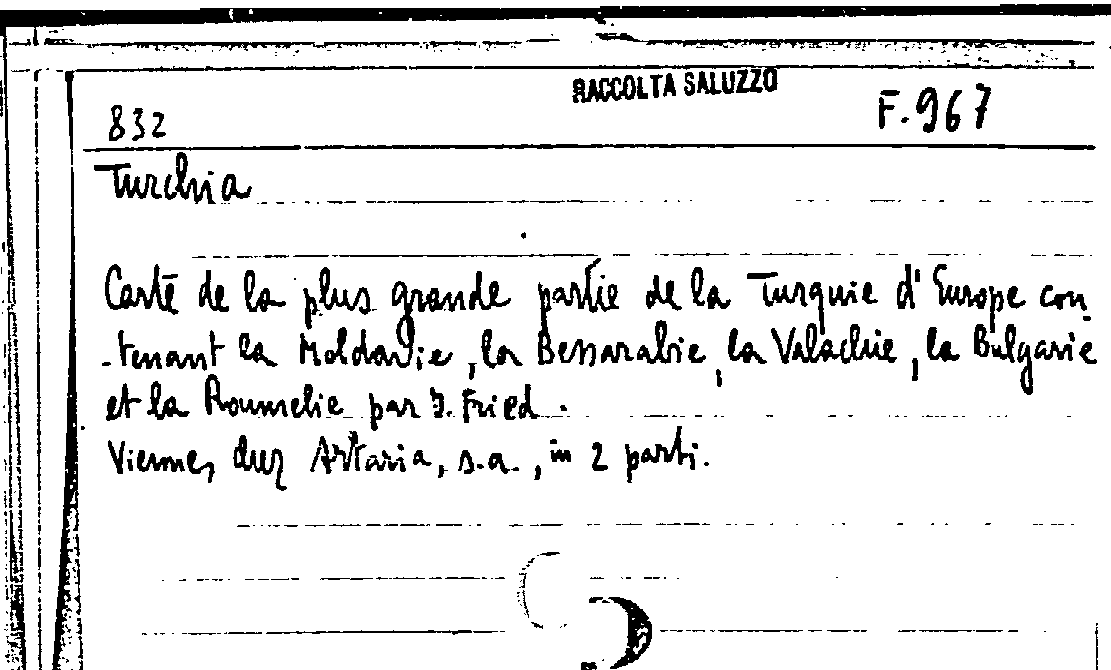 RACCOLTA SALUZZO
832 F. 967
Turchia
Carte de la plus grande partie de la Turquie d'Europe con
-tenant la Moldavie, la Bessarabie, la Valachie, la Bulgarie
et la Roumelie par J. Fried.
Vienne, chez Artaria, s.a., in 2 parti.